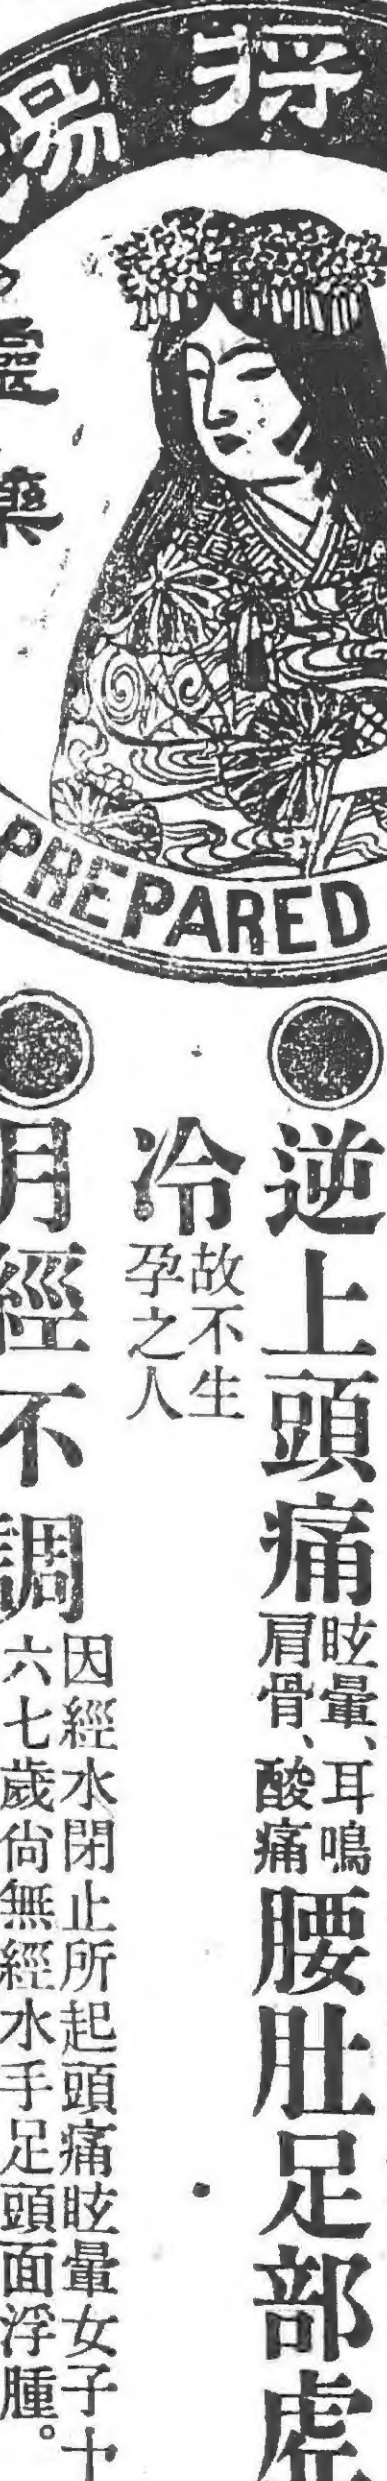 將
湯
靈藥
PREPARED
逆上頭痛
眩暈、耳鳴
肩骨、酸痛
腰肚足部虛
冷
故不生
孕之人
月經不調
因經水閉止所起頭痛眩暈女子十
六七歲尙無經水手足頭面浮腫。